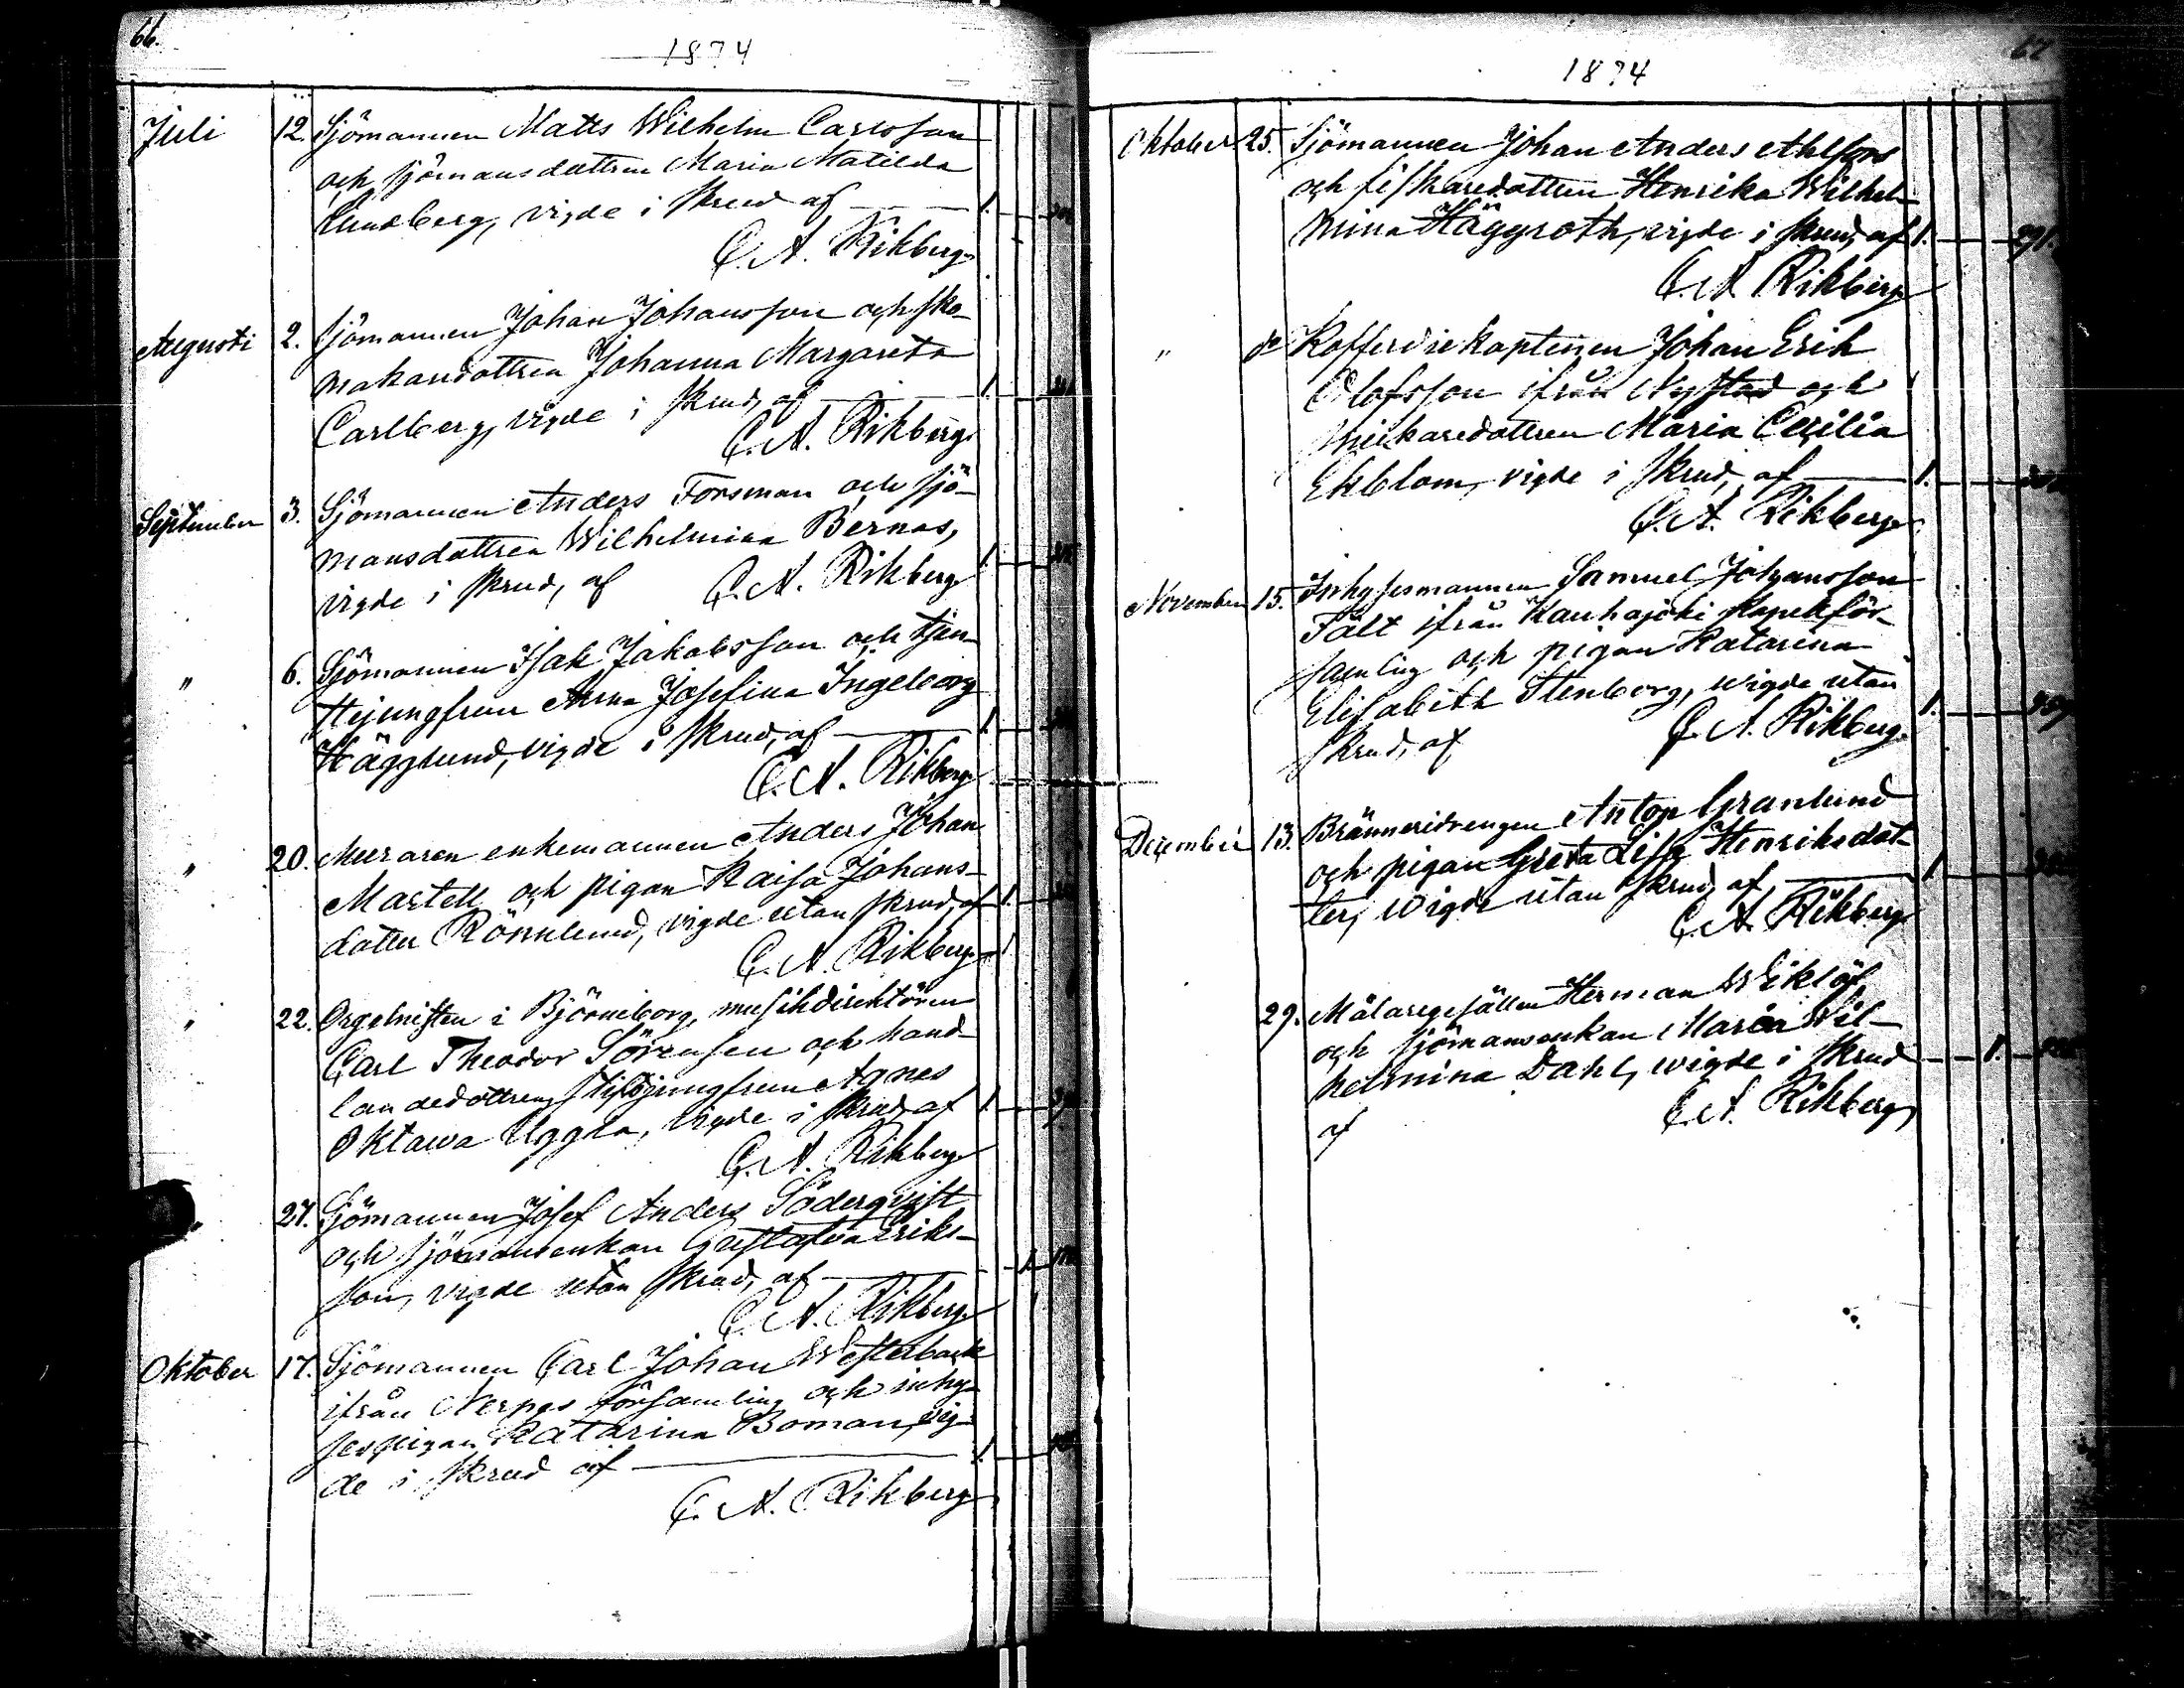 66.
1874
Juli 12. Sjömannen Matts Wilhelm Carlsson
och sjömansdottren Maria Matilda
Lundberg, vigde i skrud af — 1.
C. A. Rikberg
Augusti 2. Sjömannen Johan Johansson och sko-
makaredottren Johanna Margareta
Carlberg, vigde i skrud, af — 1.
C. A. Rikberg
September 3. Sjömannen Anders Forsman och sjö-
mansdottren Wilhelmina Bernas, 1.
vigde i skrud, af C. A. Rikberg
" 6. Sjömannen Isak Jakobsson och tjen-
stejungfrun Anna Josefina Ingeborg
Hägglund, vigde i skrud, af — 1.
C. A. Rikberg
" 20. Muraren enkemannen Anders Johan
Martell och pigan Kaisa Johans-
dotter Rönnlund, vigde utan skrud, af 1.
C. A. Rikberg
" 22. Orgelnisten i Björneborg, musikdirektören
Carl Theodor Sörensen och hand-
landedottren, jungfrun Agnes
Oktawa Uggla, vigde i skrud, af 1.
C. A. Rikberg
" 27. Sjömannen Josef Anders Söderqvist
och sjömansenkan Gustafva Eriks-
son, vigde utan skrud, af — 1.
C. A. Rikberg
Oktober 17. Sjömannen Carl Johan Westerback
ifrån Nerpes församling och inhy-
sespigan Katarina Boman, vig-
de i skrud af — 1.
C. A. Rikberg
67
1874
Oktober 25. Sjömannen Johan Anders Ahlfors
och fiskaredottren Henrika Wilhel-
mina Häggroth, vigde i skrud, af 1.
C. A. Rikberg
" de Kofferdiekaptenen Johan Erik
Olofsson ifrån Nystad och
snickaredottren Maria Cecilia
Ekblom, vigde i skrud, af — 1.
C. A. Rikberg
November 15. Inhysesmannen Samuel Johansson
Fält ifrån Kauhajoki kapellför-
samling och pigan Katarina
Elisabeth Stenborg, wigde utan 1.
skrud, af C. A. Rikberg
December 13. Bränneridrengen Anton Granlund
och pigan Greta Lisa Henriksdot-
ter, wigde utan skrud, af — 1.
C. A. Rikberg
29. Målaregesällen Herman Wiklöf
och sjömansenkan Maria Wil-
helmina Dahl, wigde i skrud 1.
af C. A. Rikberg